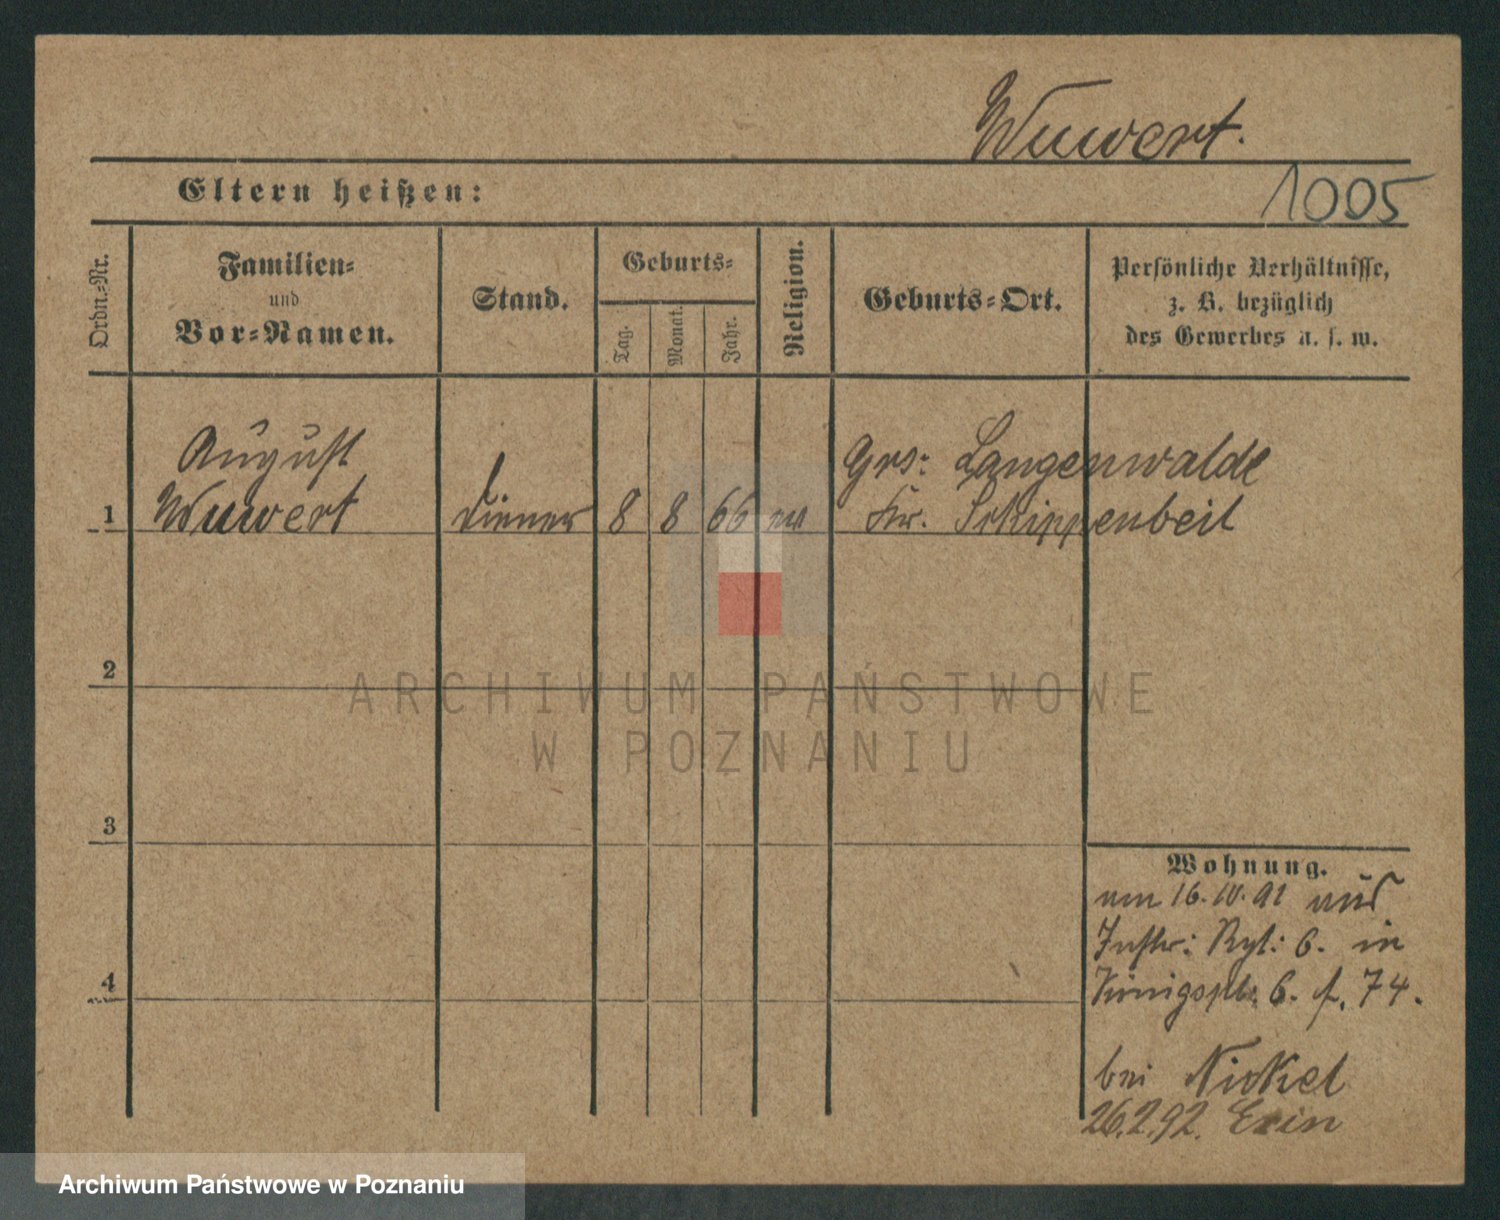 Wuwert.
Eltern heißen:
1005
Ordn.-Nr.
Familien-
und
Vor-Namen.
Stand.
Geburts-
Tag.
Monat.
Jahr.
Religion.
Geburts-Ort.
Persönliche Verhältnisse,
z. B. bezüglich
des Gewerbes u. s. w.
August
Grs: Langenwalde
1 Wuwert Diener 8 8 66 ev Kr. Schippenbeil
2
3
4
Wohnung.
am 16. 10. 91 aus
Inftr: Rgt: 6. in
Königspl: 6. f. 74.
bei Nickel
26.2.92. Exin
ARCHIWUM PAŃSTWOWE
W POZNANIU
Archiwum Państwowe w Poznaniu